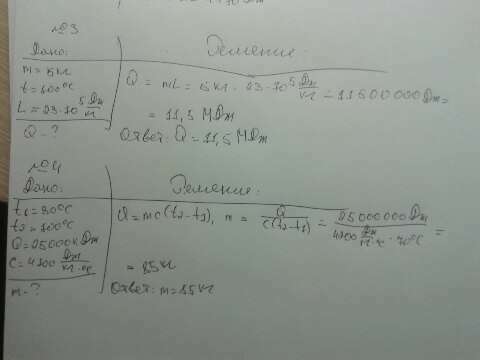 №3
Дано: Решение:
m = 5кг
t = 100°C
L = 23·10⁵ Дж/кг
Q - ?
Q = mL = 5кг · 23·10⁵ Дж/кг = 11500000 Дж =
= 11,5 МДж
Ответ: Q = 11,5 МДж
№4
Дано: Решение:
t₁ = 30°C
t₂ = 100°C
Q = 25000кДж
C = 4200 Дж/кг·°C
m - ?
Q = mc(t₂-t₁), m = Q/c(t₂-t₁) = 25000000 Дж/4200 Дж/кг·°C · 70°C =
= 85кг
Ответ: m = 85кг